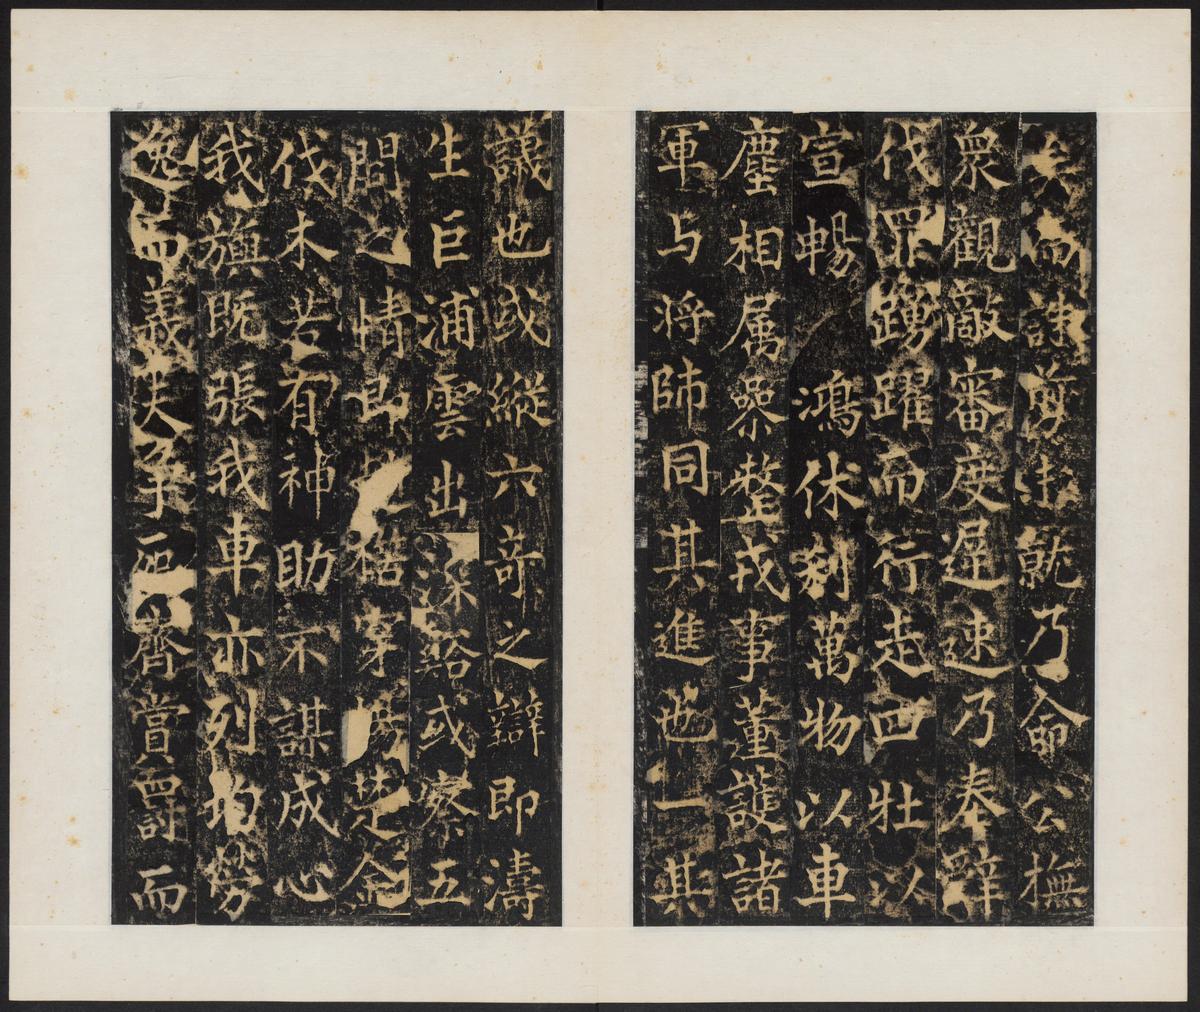 而誅剪 就乃命公撫
衆觀敵審度遲速乃奉辞
伐罪踴躍而行走四牡以
宣暢鴻休刹萬物以車
塵相属櫐整戎事董護諸
軍与將師同其進也一其
議也或縱六奇之辯即濤
生巨浦雲出深谿或察五
間之情即 楚
伐木若有神助不謀成心
我旗既張我車亦列均勞
逸而義夫争 齊賞爵而